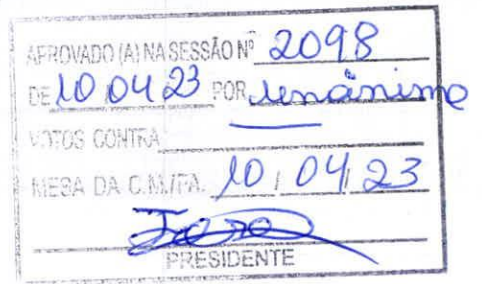 APROVADO (A) NA SESSÃO Nº 2098
DE 10 04 23 POR unânime
VOTOS CONTRA
MESA DA C.M./PA. 10 / 04 / 23
PRESIDENTE